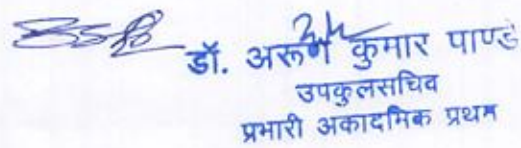 डॉ. अरूण कुमार पाण्डे
उपकुलसचिव
प्रभारी अकादमिक प्रथम